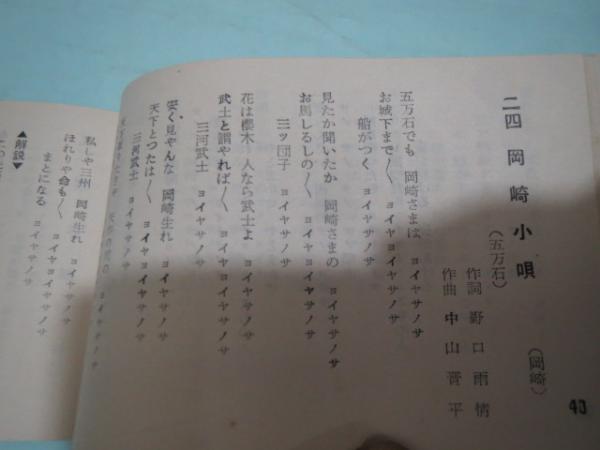 二四 岡崎小唄
(五万石)
(岡崎)
作詞 野口雨情
作曲 中山晋平
五万石でも 岡崎さまは ヨイヤサノサ
お城下まで〱 ヨイヤヨイヤサノサ
船がつく ヨイヤサノサ
見たか聞いたか 岡崎さまの ヨイヤサノサ
お馬しるしの〱 ヨイヤヨイヤサノサ
三ッ団子 ヨイヤサノサ
花は櫻木 人なら武士よ ヨイヤサノサ
武士と謂やれば〱 ヨイヤヨイヤサノサ
三河武士 ヨイヤサノサ
安く見やんな 岡崎生れ ヨイヤサノサ
天下とつたは〱 ヨイヤヨイヤサノサ
三河武士 ヨイヤサノサ
ヨイヤサノサ
40
私しや三州 岡崎生れ ヨイヤサノサ
ほれりや命も〱 ヨイヤヨイヤサノサ
まとになる ヨイヤサノサ
▲解説▼